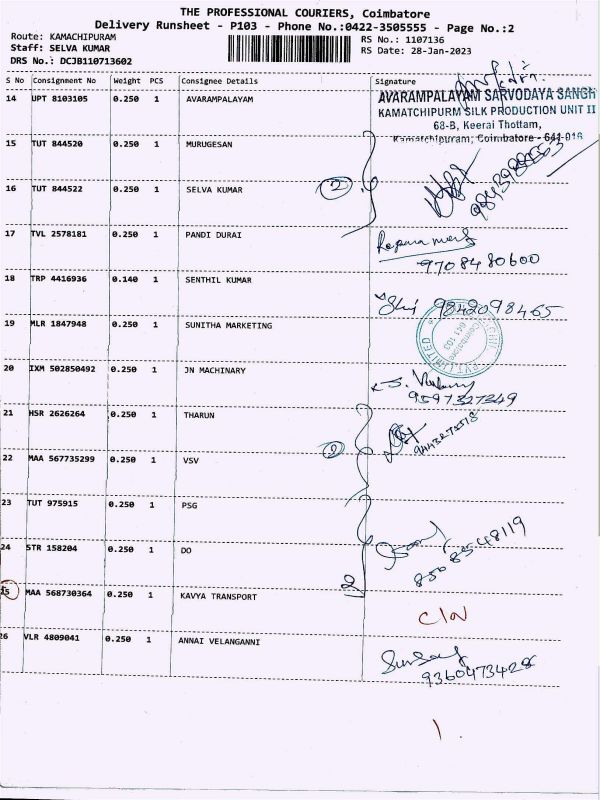 THE PROFESSIONAL COURIERS, Coimbatore
Delivery Runsheet - P103 - Phone No.:0422-3505555 - Page No.:2
Route: KAMACHIPURAM
RS No.: 1107136
Staff: SELVA KUMAR
RS Date: 28-Jan-2023
DRS No.: DCJB110713602
S No Consignment No Weight PCS Consignee Details Signature
14 UPT 8103105 0.250 1 AVARAMPALAYAM
AVARAMPALAYAM SARVODAYA SANGH
KAMATCHIPURM SILK PRODUCTION UNIT II
68-B, Keerai Thottam,
Kamatchipuram, Coimbatore - 641 016
15 TUT 844520 0.250 1 MURUGESAN
16 TUT 844522 0.250 1 SELVA KUMAR 2
17 TVL 2578181 0.250 1 PANDI DURAI
9708480600
18 TRP 4416936 0.140 1 SENTHIL KUMAR
9842098465
19 MLR 1847948 0.250 1 SUNITHA MARKETING
641 103
Coimbatore
PVT. LIMITED
20 IXM 502850492 0.250 1 JN MACHINARY
9597327349
21 HSR 2626264 0.250 1 THARUN
22 MAA 567735299 0.250 1 VSV
23 TUT 975915 0.250 1 PSG
24 STR 158204 0.250 1 DO
8508548119
25 MAA 568730364 0.250 1 KAVYA TRANSPORT
C/N
26 VLR 4809041 0.250 1 ANNAI VELANGANNI
9360473428